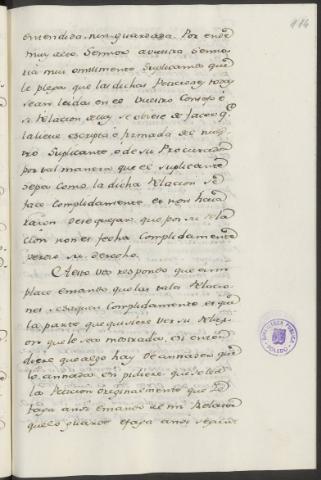 114
entendida, nin guardada. Por ende
muy alto Sennor a vuestra Senno-
ria mui omillmente suplicamos que
le plega que las dichas Peticiones todas
sean leidas en el Vuestro Consejo e
la Relacion dellas se obiere de facer q.e
la lieve escripta e firmada del nues-
tro Suplicante, o de su Procurador
por tal manera que el suplicante
sepa como la dicha Relacion se
face complidamente, et non haia
razon de se quejar, que por su Rela-
cion non es fecha complidamente
perdio su derecho.
A esto vos respondo que a mi
place e mando que las tales Relacio-
nes se saquen complidamente, et que
la parte que quisiere ver su Relaci-
on que le sea mostrada, et si enten-
diere que algo hay de annader que
lo annada, e si pidiere que se lea
la Peticion originalmente que se
faga ansi e mando al mi Relator
que lo guarde e faga ansi segund
BIBLIOTECA PUBLICA
TOLEDO